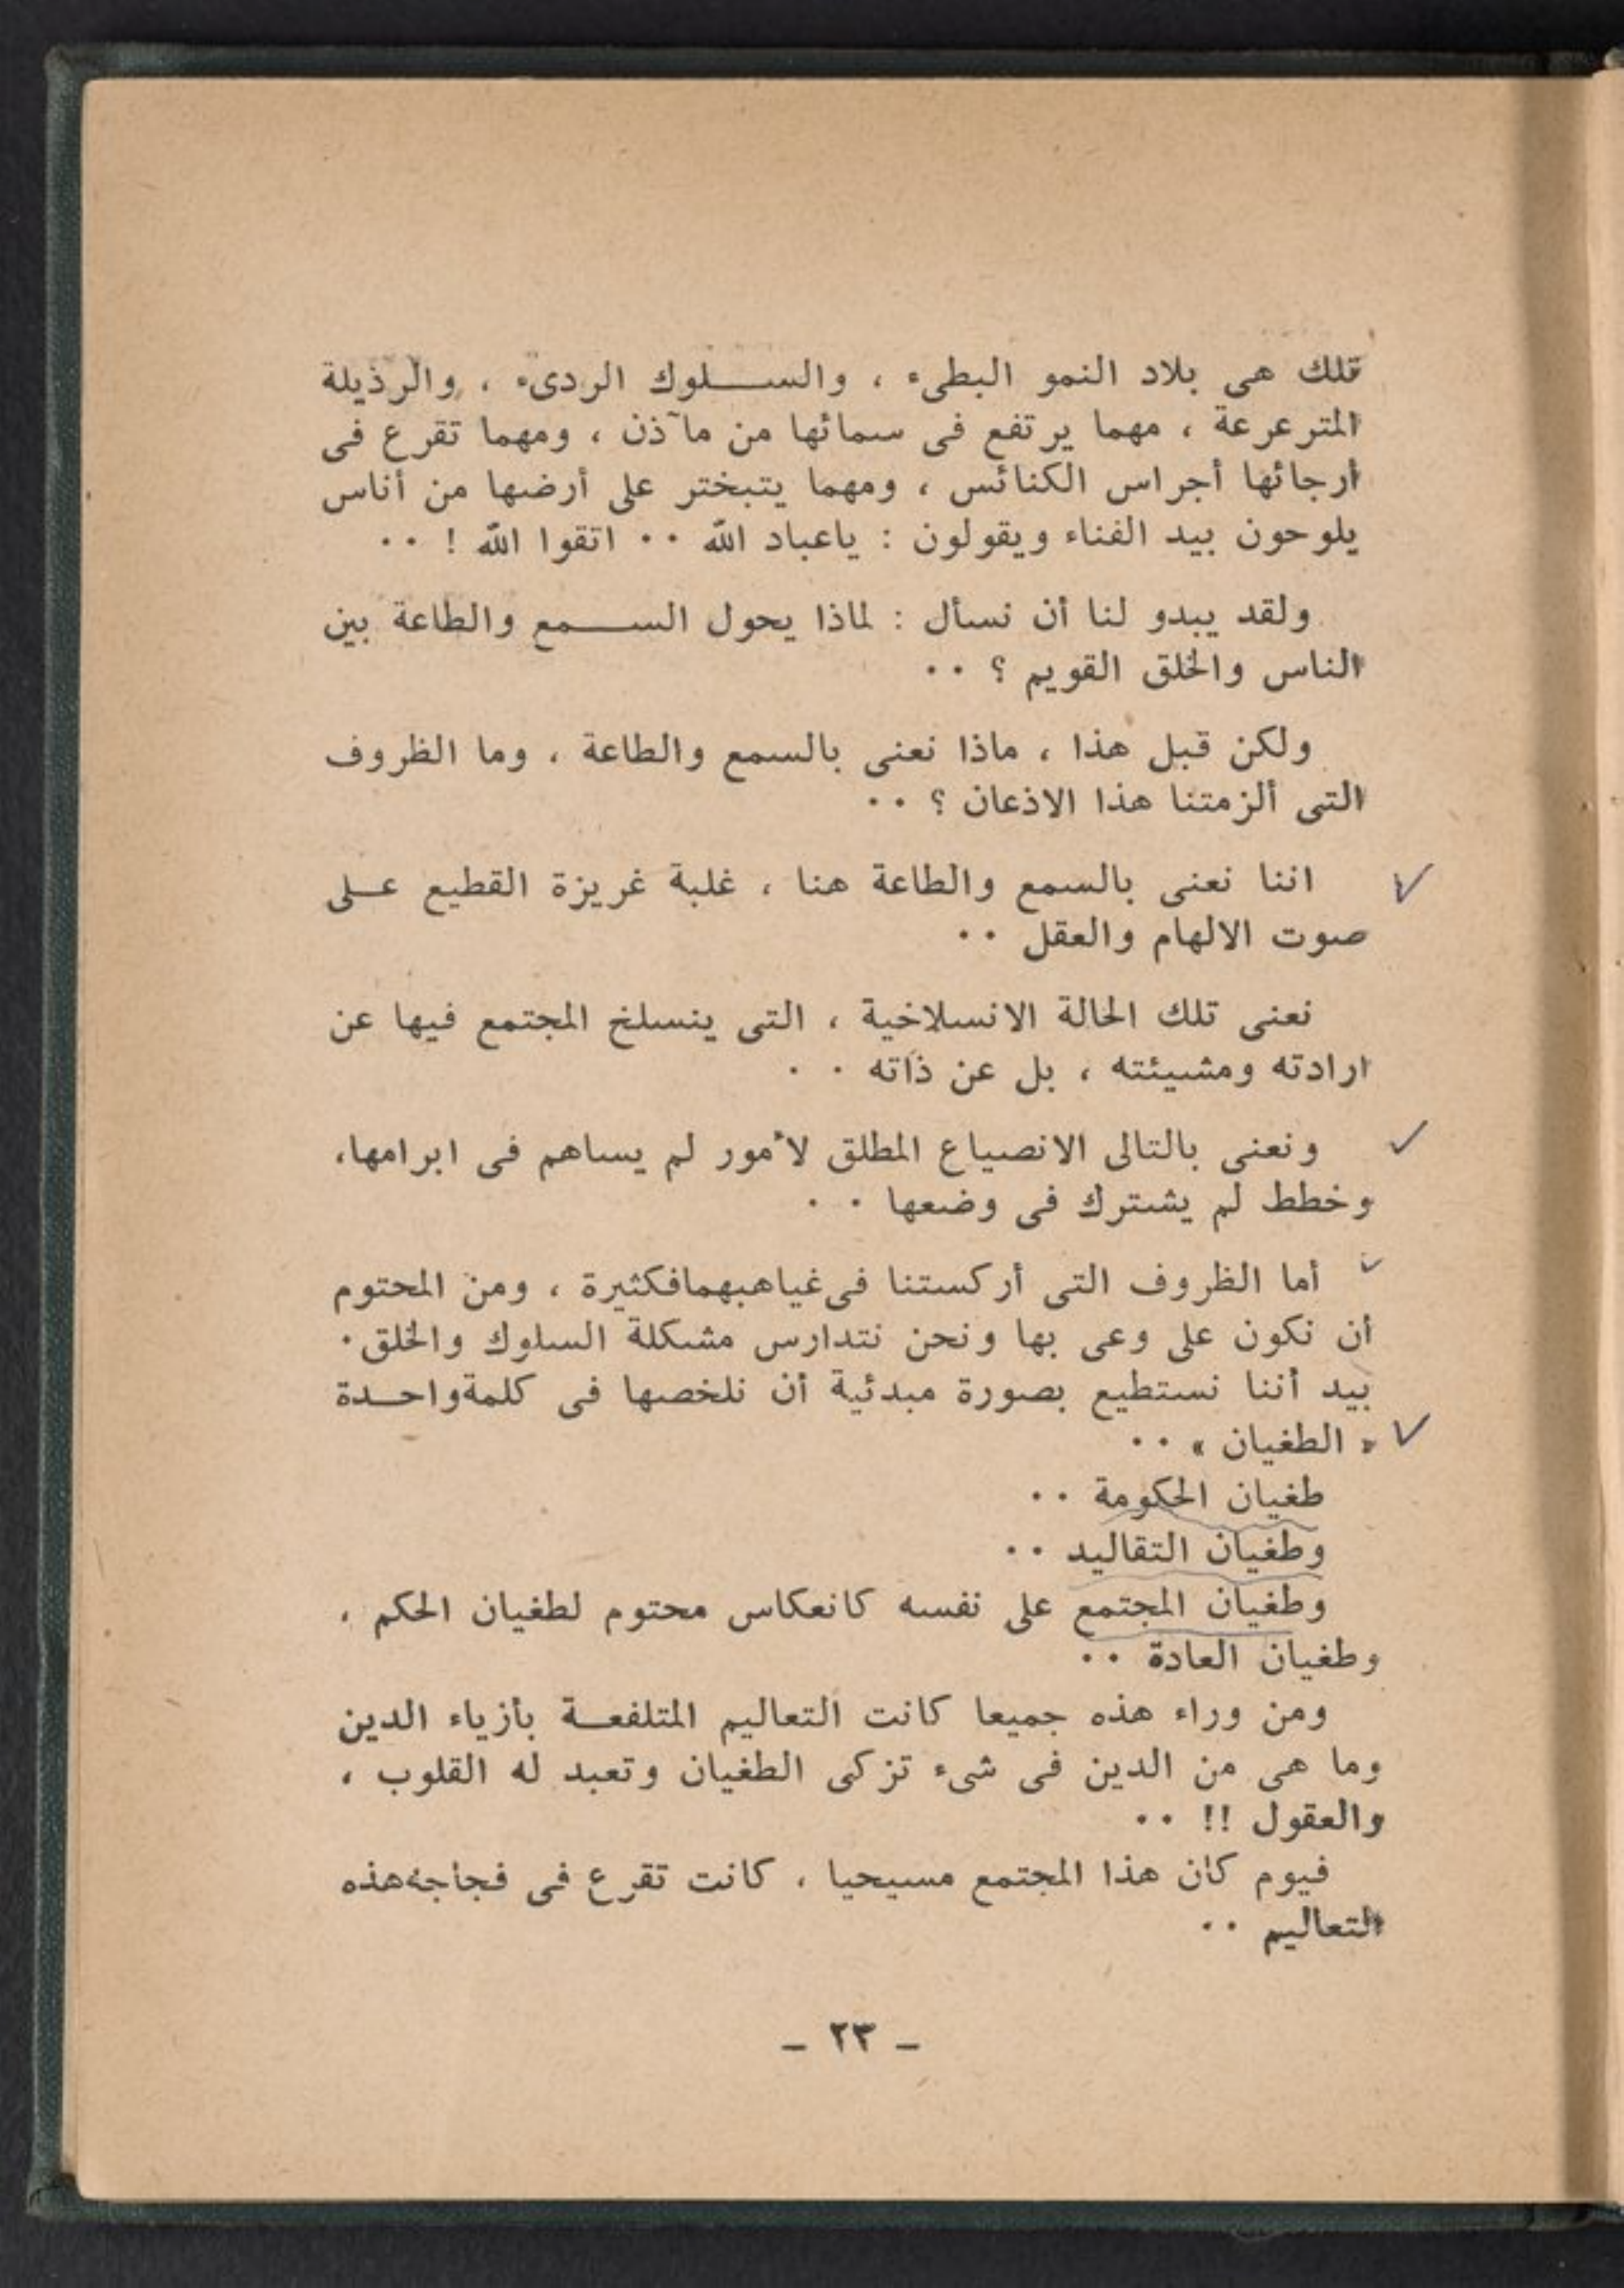 تلك هى بلاد النمو البطىء ، والسلوك الردىء ، والرذيلة
المترعرعة ، مهما يرتفع فى سمائها من مآذن ، ومهما تقرع فى
أرجائها أجراس الكنائس ، ومهما يتبختر على أرضها من أناس
يلوحون بيد الفناء ويقولون : ياعباد الله ٠٠ اتقوا الله ! ٠٠
ولقد يبدو لنا أن نسأل : لماذا يحول السمع والطاعة بين
الناس والخلق القويم ؟ ٠٠
ولكن قبل هذا ، ماذا نعنى بالسمع والطاعة ، وما الظروف
التى ألزمتنا هذا الاذعان ؟ ٠٠
اننا نعنى بالسمع والطاعة هنا ، غلبة غريزة القطيع على
صوت الالهام والعقل ٠٠
نعنى تلك الحالة الانسلاخية ، التى ينسلخ المجتمع فيها عن
ارادته ومشيئته ، بل عن ذاته ٠ ٠
ونعنى بالتالى الانصياع المطلق لأمور لم يساهم فى ابرامها،
وخطط لم يشترك فى وضعها ٠ ٠
أما الظروف التى أركستنا فى غياهبهمافكثيرة ، ومن المحتوم
أن نكون على وعى بها ونحن نتدارس مشكلة السلوك والخلق ٠
بيد أننا نستطيع بصورة مبدئية أن نلخصها فى كلمةواحدة
« الطغيان » ٠٠
طغيان الحكومة ٠٠
وطغيان التقاليد ٠٠
وطغيان المجتمع على نفسه كانعكاس محتوم لطغيان الحكم ،
وطغيان العادة ٠٠
ومن وراء هذه جميعا كانت التعاليم المتلفعة بأزياء الدين
وما هى من الدين فى شىء تزكى الطغيان وتعبد له القلوب ،
والعقول !! ٠٠
فيوم كان هذا المجتمع مسيحيا ، كانت تقرع فى فجاجه هذه
التعاليم ٠٠
– ٢٣ –